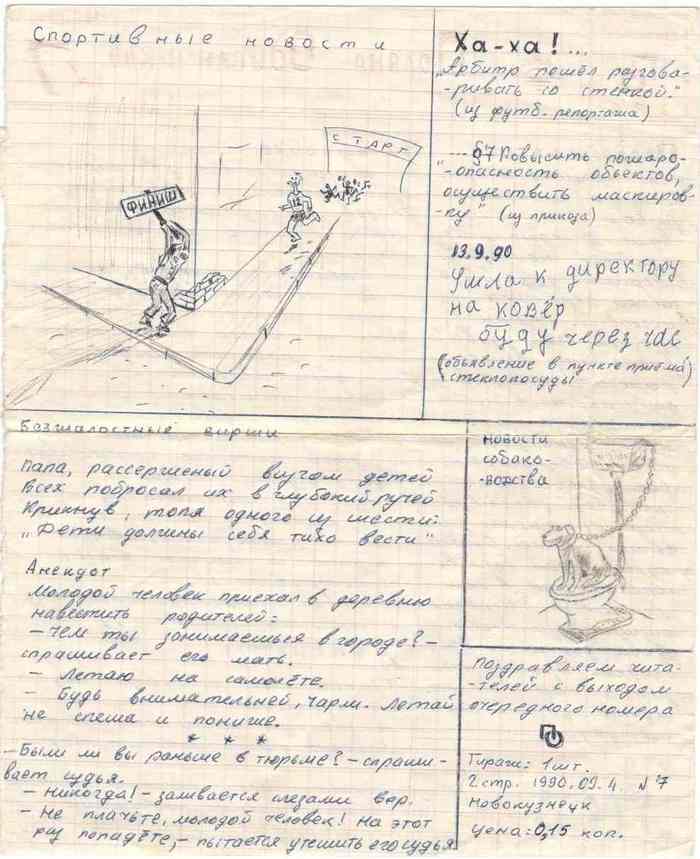 Спортивные новости
СТАРТ
ФИНИШ
12
Ха-ха!...
„Арбитр пошёл разгова-
-ривать со стенкой."
(из футб. репортажа)
"---§7 Повысить пожаро-
-опасность объектов,
осуществить маскиров-
-ку" (из приказа)
13.9.90
Ушла к директору
на ковёр
буду через час
(объявление в пункте приёма)
стеклопосуды
Безжалостные вирши
Папа, рассерженый визгом детей
Всех побросал их в глубокий ручей
Крикнув, топя одного из шести:
„Дети должны себя тихо вести"
Анекдот
Молодой человек приехал в деревню
навестить родителей:
– Чем ты занимаешься в городе? –
спрашивает его мать.
– Летаю на самолёте.
– Будь внимательней, Чарли. Летай
не спеша и пониже.
* * *
– Были ли вы раньше в тюрьме? – спраши-
вает судья.
– Никогда! – заливается слезами вор.
– Не плачьте, молодой человек! На этот
раз попадёте, – пытается утешить его судья
новости
собако-
-водства
Поздравляем чита-
-телей с выходом
очередного номера
Тираж: 1 шт.
2 стр. 1990.09.4. N 7
Новокузнецк
цена: 0,15 коп.